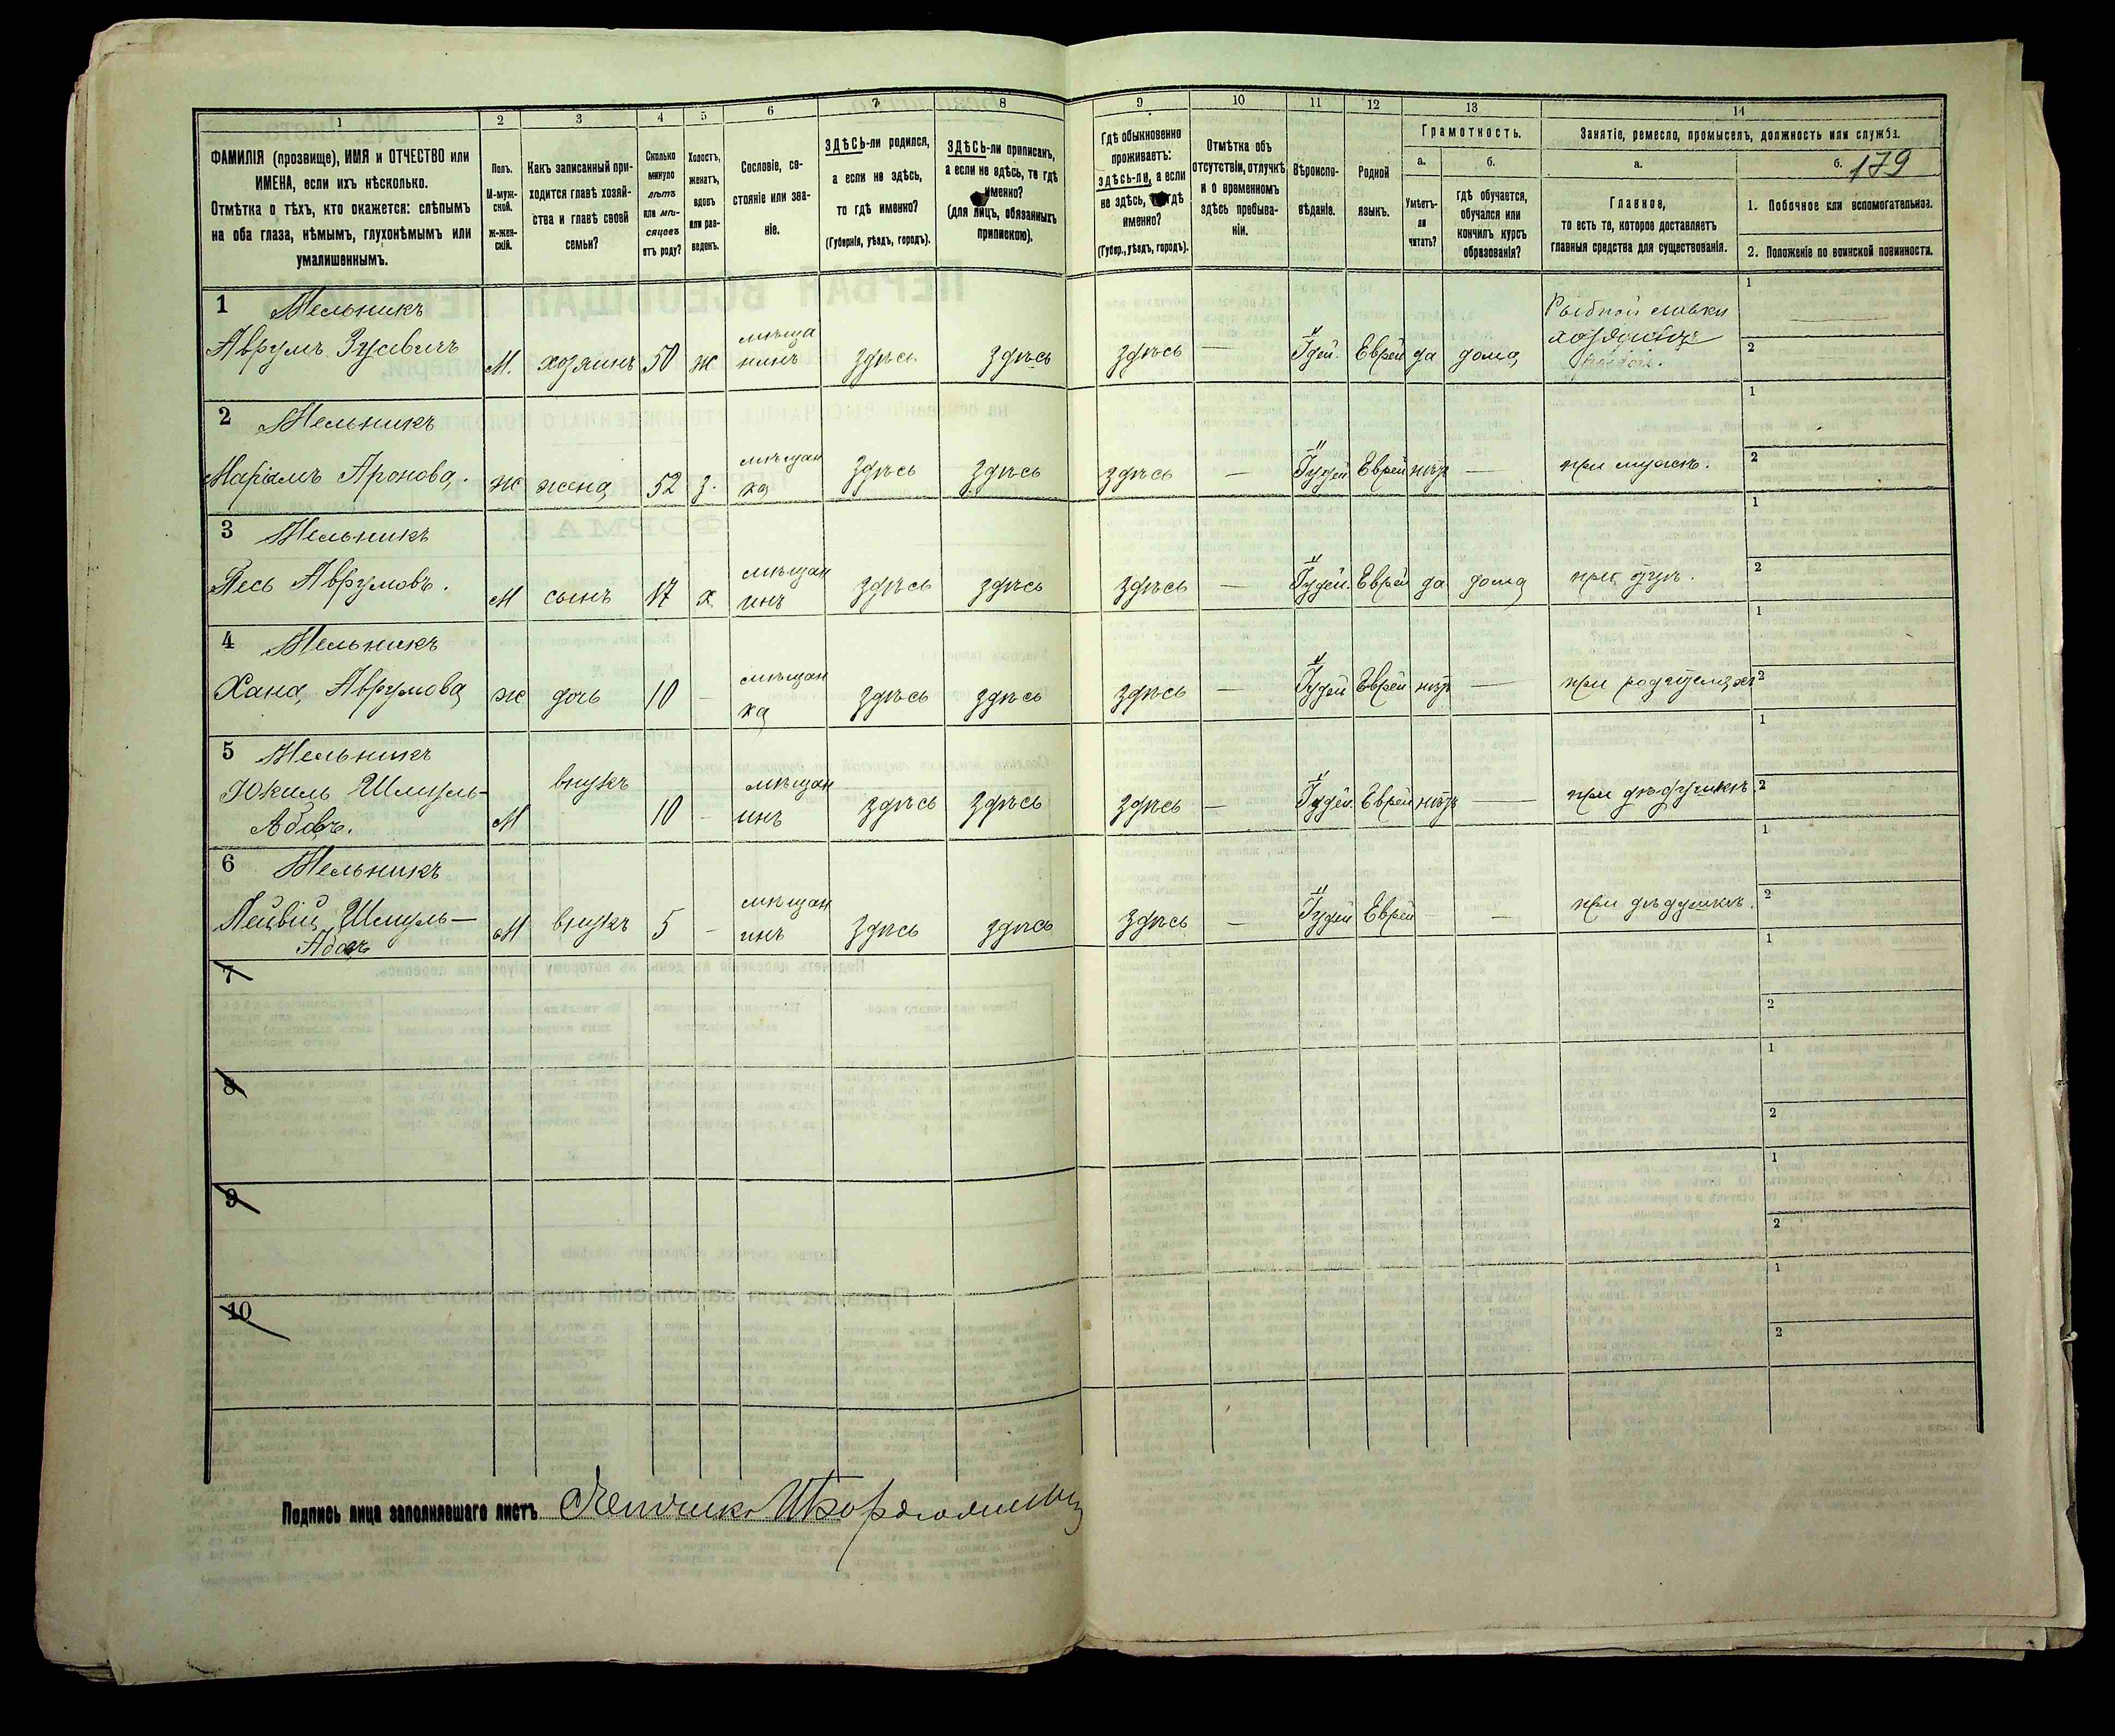 1
2
3
4
5
6
7
8
9
10
11
12
13
14
ФАМИЛІЯ (прозвище), ИМЯ и ОТЧЕСТВО или
ИМЕНА, если ихъ нѣсколько.
Отмѣтка о тѣхъ, кто окажется: слѣпымъ
на оба глаза, нѣмымъ, глухонѣмымъ или
умалишеннымъ.
Полъ.
М-муж-
ской.
ж-жен-
скій.
Какъ записанный при-
ходится главѣ хозяй-
ства и главѣ своей
семьи?
Сколько
минуло
лѣтъ
или мѣ-
сяцевъ
отъ роду?
Холостъ,
женатъ,
вдовъ
или раз-
веденъ.
Сословіе, со-
стояніе или зва-
ніе.
ЗДѢСЬ-ли родился,
а если не здѣсь,
то гдѣ именно?
(Губернія, уѣздъ, городъ).
ЗДѢСЬ-ли приписанъ,
а если не здѣсь, то гдѣ
именно?
(для лицъ, обязанныхъ
припискою).
Гдѣ обыкновенно
проживаетъ:
здѣсь-ли, а если
не здѣсь, гдѣ
именно?
(Губер., уѣздъ, городъ).
Отмѣтка объ
отсутствіи, отлучкѣ
и о временномъ
здѣсь пребыва-
ніи.
Вѣроиспо-
вѣданіе.
Родной
языкъ.
Грамотность.
а.
Умѣетъ-
ли
читать?
б.
гдѣ обучается,
обучался или
кончилъ курсъ
образованія?
Занятіе, ремесло, промыселъ, должность или служба.
а.
Главное,
то есть то, которое доставляетъ
главныя средства для существованія.
б. 179
1. Побочное или вспомогательное.
2. Положеніе по воинской повинности.
1 Мельникъ
Аврумъ Зусевичъ М. хозяинъ 50 ж мѣща
нинъ здѣсь здѣсь здѣсь — Іудей. Еврей да дома Рыбной лавки
хозяинъ
1
2
2 Мельникъ
Маріамъ Аронова. ж жена 52 з. мѣщан
ка здѣсь здѣсь здѣсь — Іудей Еврей нѣтъ — при мужѣ.
1
2
3 Мельникъ
Аврумовъ. М сынъ 17 х мѣщан
инъ здѣсь здѣсь здѣсь — Іудей. Еврей да дома при отцѣ.
1
2
4 Мельникъ
Хана Аврумова ж дочь 10 — мѣщан
ка здѣсь здѣсь здѣсь — Іудей Еврей нѣтъ — при родителяхъ
1
2
5 Мельникъ
Юкиль Шмуль-
Абовъ. М внукъ 10 — мѣщан
инъ здѣсь здѣсь здѣсь — Іудей. Еврей нѣтъ — при дѣдушкѣ.
1
2
6 Мельникъ
Шмуль—
М внукъ 5 — мѣщан
инъ здѣсь здѣсь здѣсь — Іудей Еврей — — при дѣдушкѣ.
1
2
7
1
2
8
1
2
9
1
2
10
1
2
Подпись лица заполнявшаго листъ